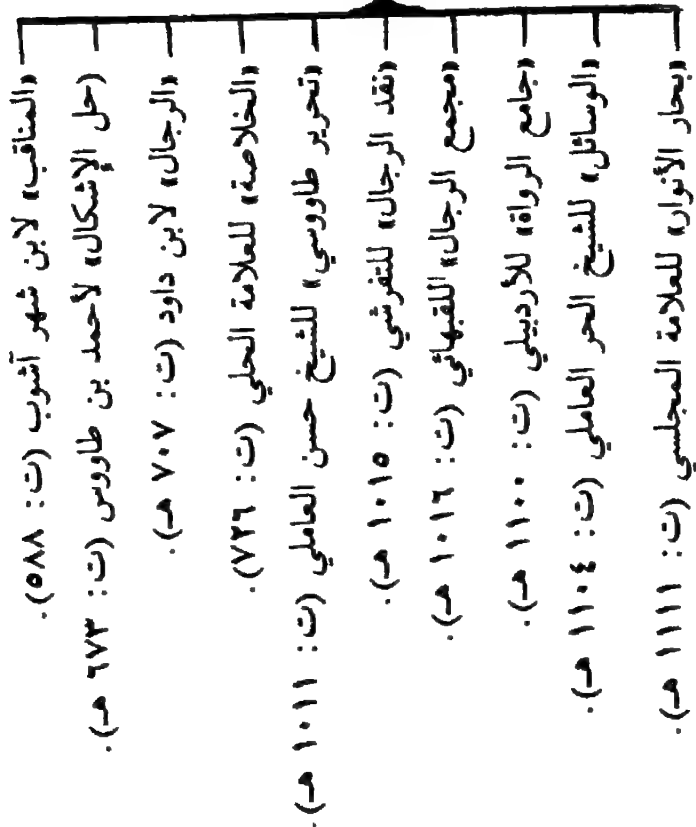 «المناقب» لابن شهر آشوب (ت: ٥٨٨).
(حل الإشكال» لأحمد بن طاووس (ت: ٦٧٣ هـ).
«الرجال» لابن داود (ت: ٧٠٧ هـ).
«الخلاصة» للعلامة الحلي (ت: ٧٢٦).
«تحرير طاووسي» للشيخ حسن العاملي (ت: ١٠١١ هـ).
«نقد الرجال» للتفرشي (ت: ١٠١٥ هـ).
«مجمع الرجال» للقبهائي (ت: ١٠١٦ هـ).
«جامع الرواة» للأردبيلي (ت: ١١٠٠ هـ).
«الوسائل» للشيخ الحر العاملي (ت: ١١٠٤ هـ).
«بحار الأنوار» للعلامة المجلسي (ت: ١١١١ هـ).